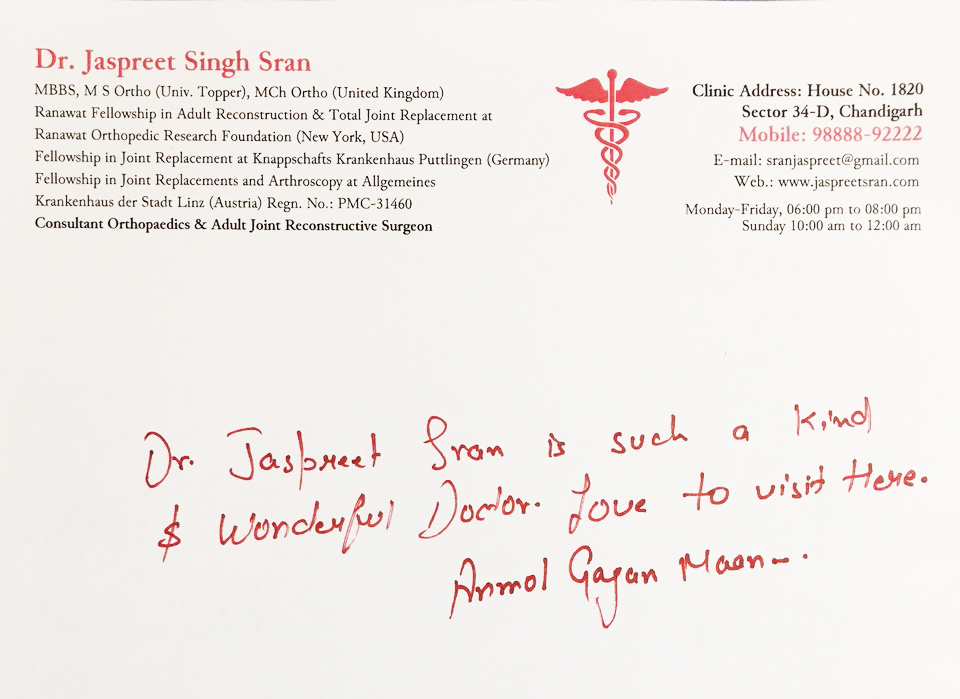 Dr. Jaspreet Singh Sran
MBBS, M S Ortho (Univ. Topper), MCh Ortho (United Kingdom)
Ranawat Fellowship in Adult Reconstruction & Total Joint Replacement at
Ranawat Orthopedic Research Foundation (New York, USA)
Fellowship in Joint Replacement at Knappschafts Krankenhaus Puttlingen (Germany)
Fellowship in Joint Replacements and Arthroscopy at Allgemeines
Krankenhaus der Stadt Linz (Austria) Regn. No.: PMC-31460
Consultant Orthopaedics & Adult Joint Reconstructive Surgeon
Clinic Address: House No. 1820
Sector 34-D, Chandigarh
Mobile: 98888-92222
E-mail: sranjaspreet@gmail.com
Web.: www.jaspreetsran.com
Monday-Friday, 06:00 pm to 08:00 pm
Sunday 10:00 am to 12:00 am
Dr. Jaspreet Sran is such a kind
& Wonderful Doctor. Love to visit Here.
Anmol Gagan Maan